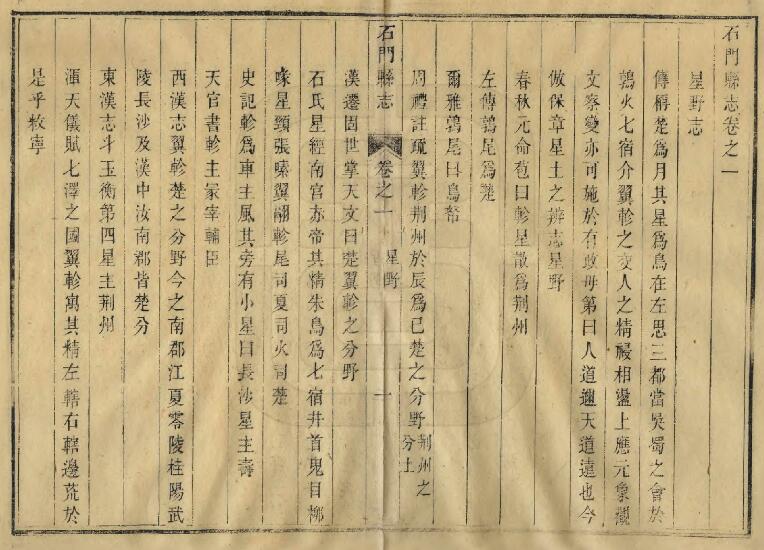 石門縣志卷之一
星野志
傳稱楚爲月其星爲鳥在左思三都當吳蜀之會於
鶉火七宿介翼軫之交人之精祲相盪上應元象觀
文察變亦可施於有政毋第曰人道邇天道遠也今
倣保章星土之辨志星野
春秋元命苞曰軫星散爲荆州
左傳鶉尾爲楚
爾雅鶉尾曰鳥帑
周禮註疏翼軫荆州於辰爲巳楚之分野荆州之分土
石門縣志 卷之一 星野 一
漢遷固世掌天文曰楚翼軫之分野
石氏星經南宮赤帝其精朱鳥爲七宿井首鬼目柳
喙星頸張嗉翼翮軫尾司夏司火司楚
史記軫爲車主風其旁有小星曰長沙星主壽
天官書軫主冢宰輔臣
西漢志翼軫楚之分野今之南郡江夏零陵桂陽武
陵長沙及漢中汝南郡皆楚分
東漢志斗玉衡第四星主荆州
渾天儀賦七澤之國翼軫寓其精左轄右轄邊荒於
是乎敉寧